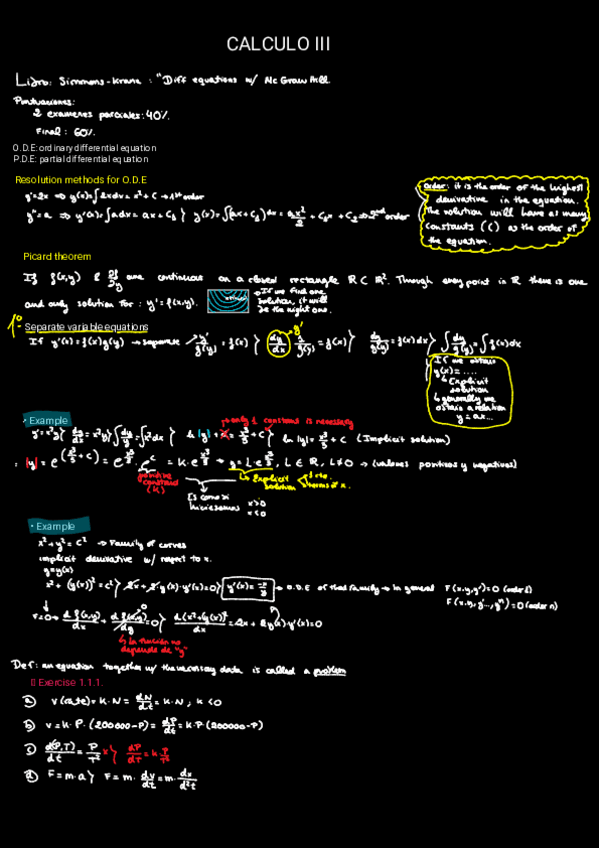 CALCULO III
Libro: Simmons-Krane : "Diff equations w/ Mc Graw Hill
Puntuaciones:
2 examenes parciales: 40%.
Final: 60%.
O.D.E: ordinary differential equation
P.D.E: partial differential equation
Resolution methods for O.D.E
y'=2x ⇒ y(x)=∫2xdx = x²+C → 1st order
y''=a ⇒ y'(x)=∫adx = ax+C₁ } y(x)=∫(ax+C₁)dx = ax²/2 + C₁x + C₂ ⇒ 2nd order
Order: it is the order of the highest
derivative in the equation.
The solution will have as many
constants (C) as the order of
the equation.
Picard theorem
If f(x,y) & ∂f/∂y are continuous on a closed rectangle R ⊂ R². Through every point in R there is one
and only solution for: y'=f(x,y).
→ If we find one
solution, it will
be the right one.
1º- Separate variable equations
If y'(x)=f(x)g(y) → separate → y'/g(y) = f(x) } dy/dx · 1/g(y) = f(x) } dy/g(y) = f(x)dx } ∫dy/g(y) = ∫f(x)dx
y'
If we obtain
y(x)=....
↳ Explicit
solution
↳ generally we
obtain a relation
y = ax...
· Example
→ only 1 constant is necessary
y'=x²y } dy/dx = x²y } ∫dy/y = ∫x²dx } ln|y| + = x³/3 + C } ln|y| = x³/3 + C (Implicit solution)
: |y| = e^(x³/3 + C) = e^x³/3 · e^C = K·e^x³/3 → y = L·e^x³/3, L ∈ R, L≠0 → (valores positivos y negativos)
positive
constant
(K)
↳ Explicit
solution
Es como si
hiciesemos x>0
x<0
· Example
x²+y²=C² → Family of curves
implicit derivative w/ respect to x.
y=y(x)
x²+(y(x))²=C² } 2x+2·y(x)·y'(x)=0 } y'(x) = -x/y → O.D.E of that family → in general F(x,y,y')=0 (order 1)
F(x,y,y'...,yⁿ)=0 (order n)
d(x²+(y(x))²)/dx = 2x+2y(x)·y'(x)=0
↳ la función no
depende de "y"
Def: an equation together w/ the necessary data is called a problem
Exercise 1.1.1.
a) v(rate)=K·N = dN/dt = K·N ; K<0
b) v=K·P·(200000-P) = dP/dt = K·P·(200000-P)
c) d(P,T)/dt = P/T² x } dP/dT = K·P/T²
d) F=m·a } F=m·dv/dt = m·dx/d²t